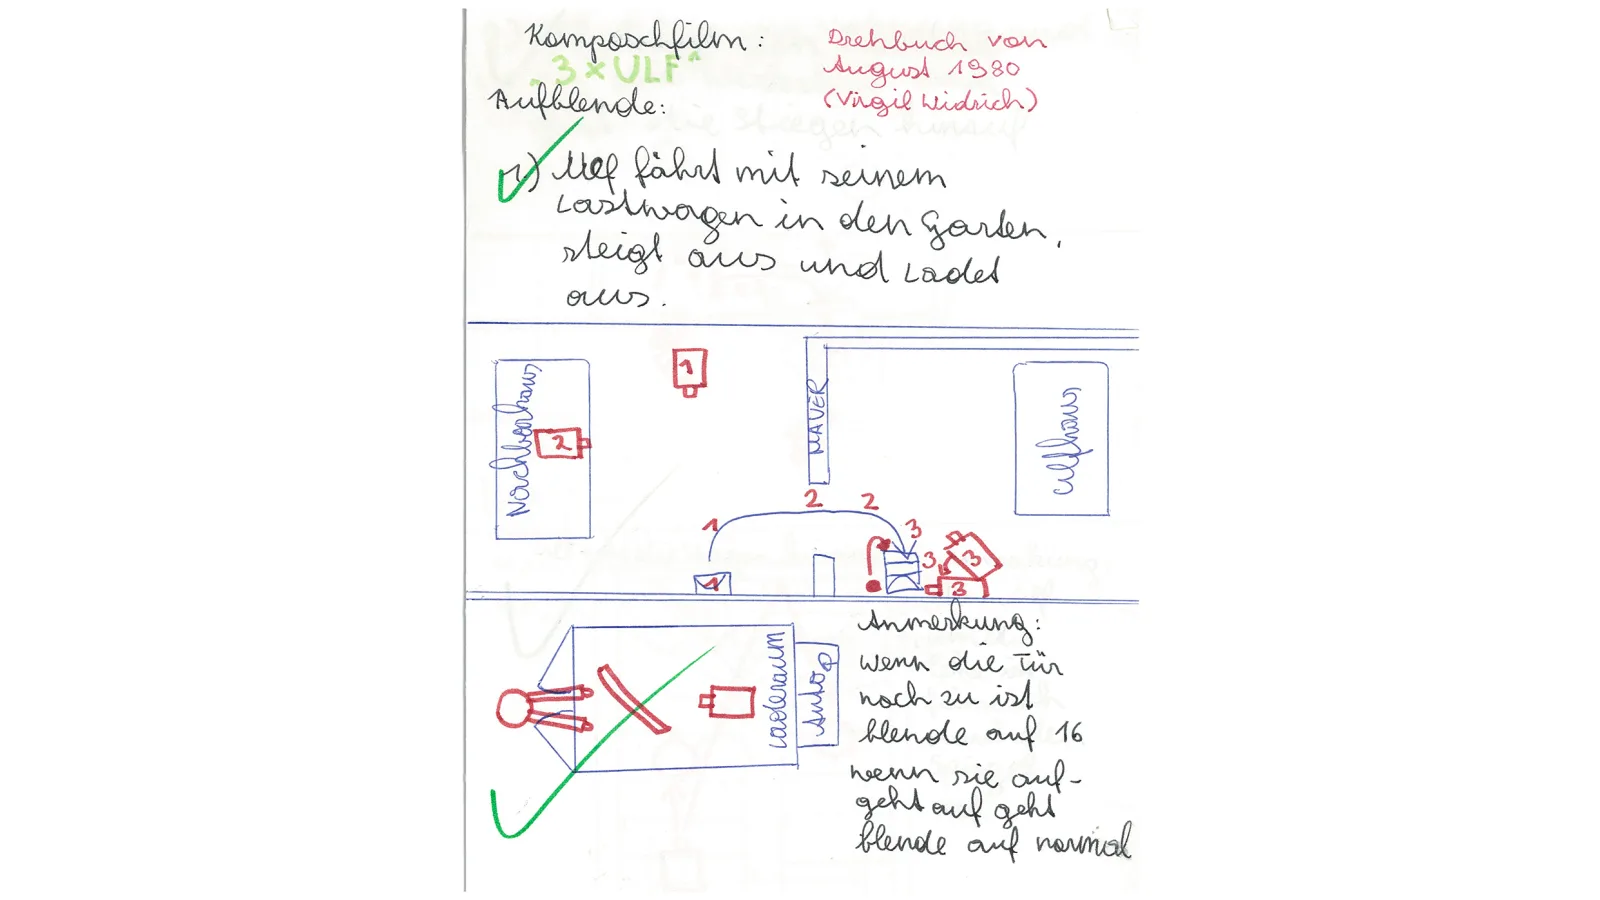 Komposchfilm:
„3 x ULF“
Drehbuch von
August 1980
(Virgil Widrich)
Aufblende:
1) Ulf fährt mit seinem
Lastwagen in den Garten,
steigt aus und Ladet
aus.
Nachbarhaus
1
2
MAUER
Ulfhaus
1
2
2
3
3
3
3
1
Laderaum
Auto
Anmerkung:
wenn die Tür
noch zu ist
blende auf 16
wenn sie auf-
geht auf geht
blende auf normal